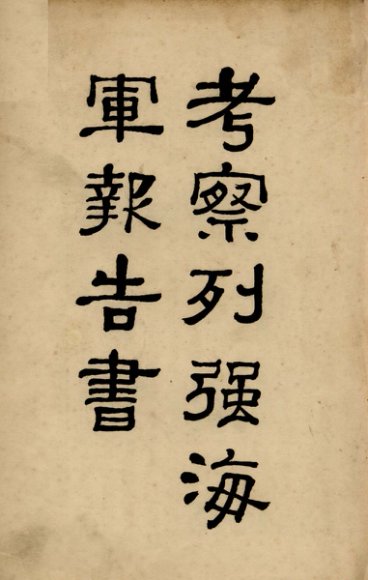 考察列强海
軍報告書